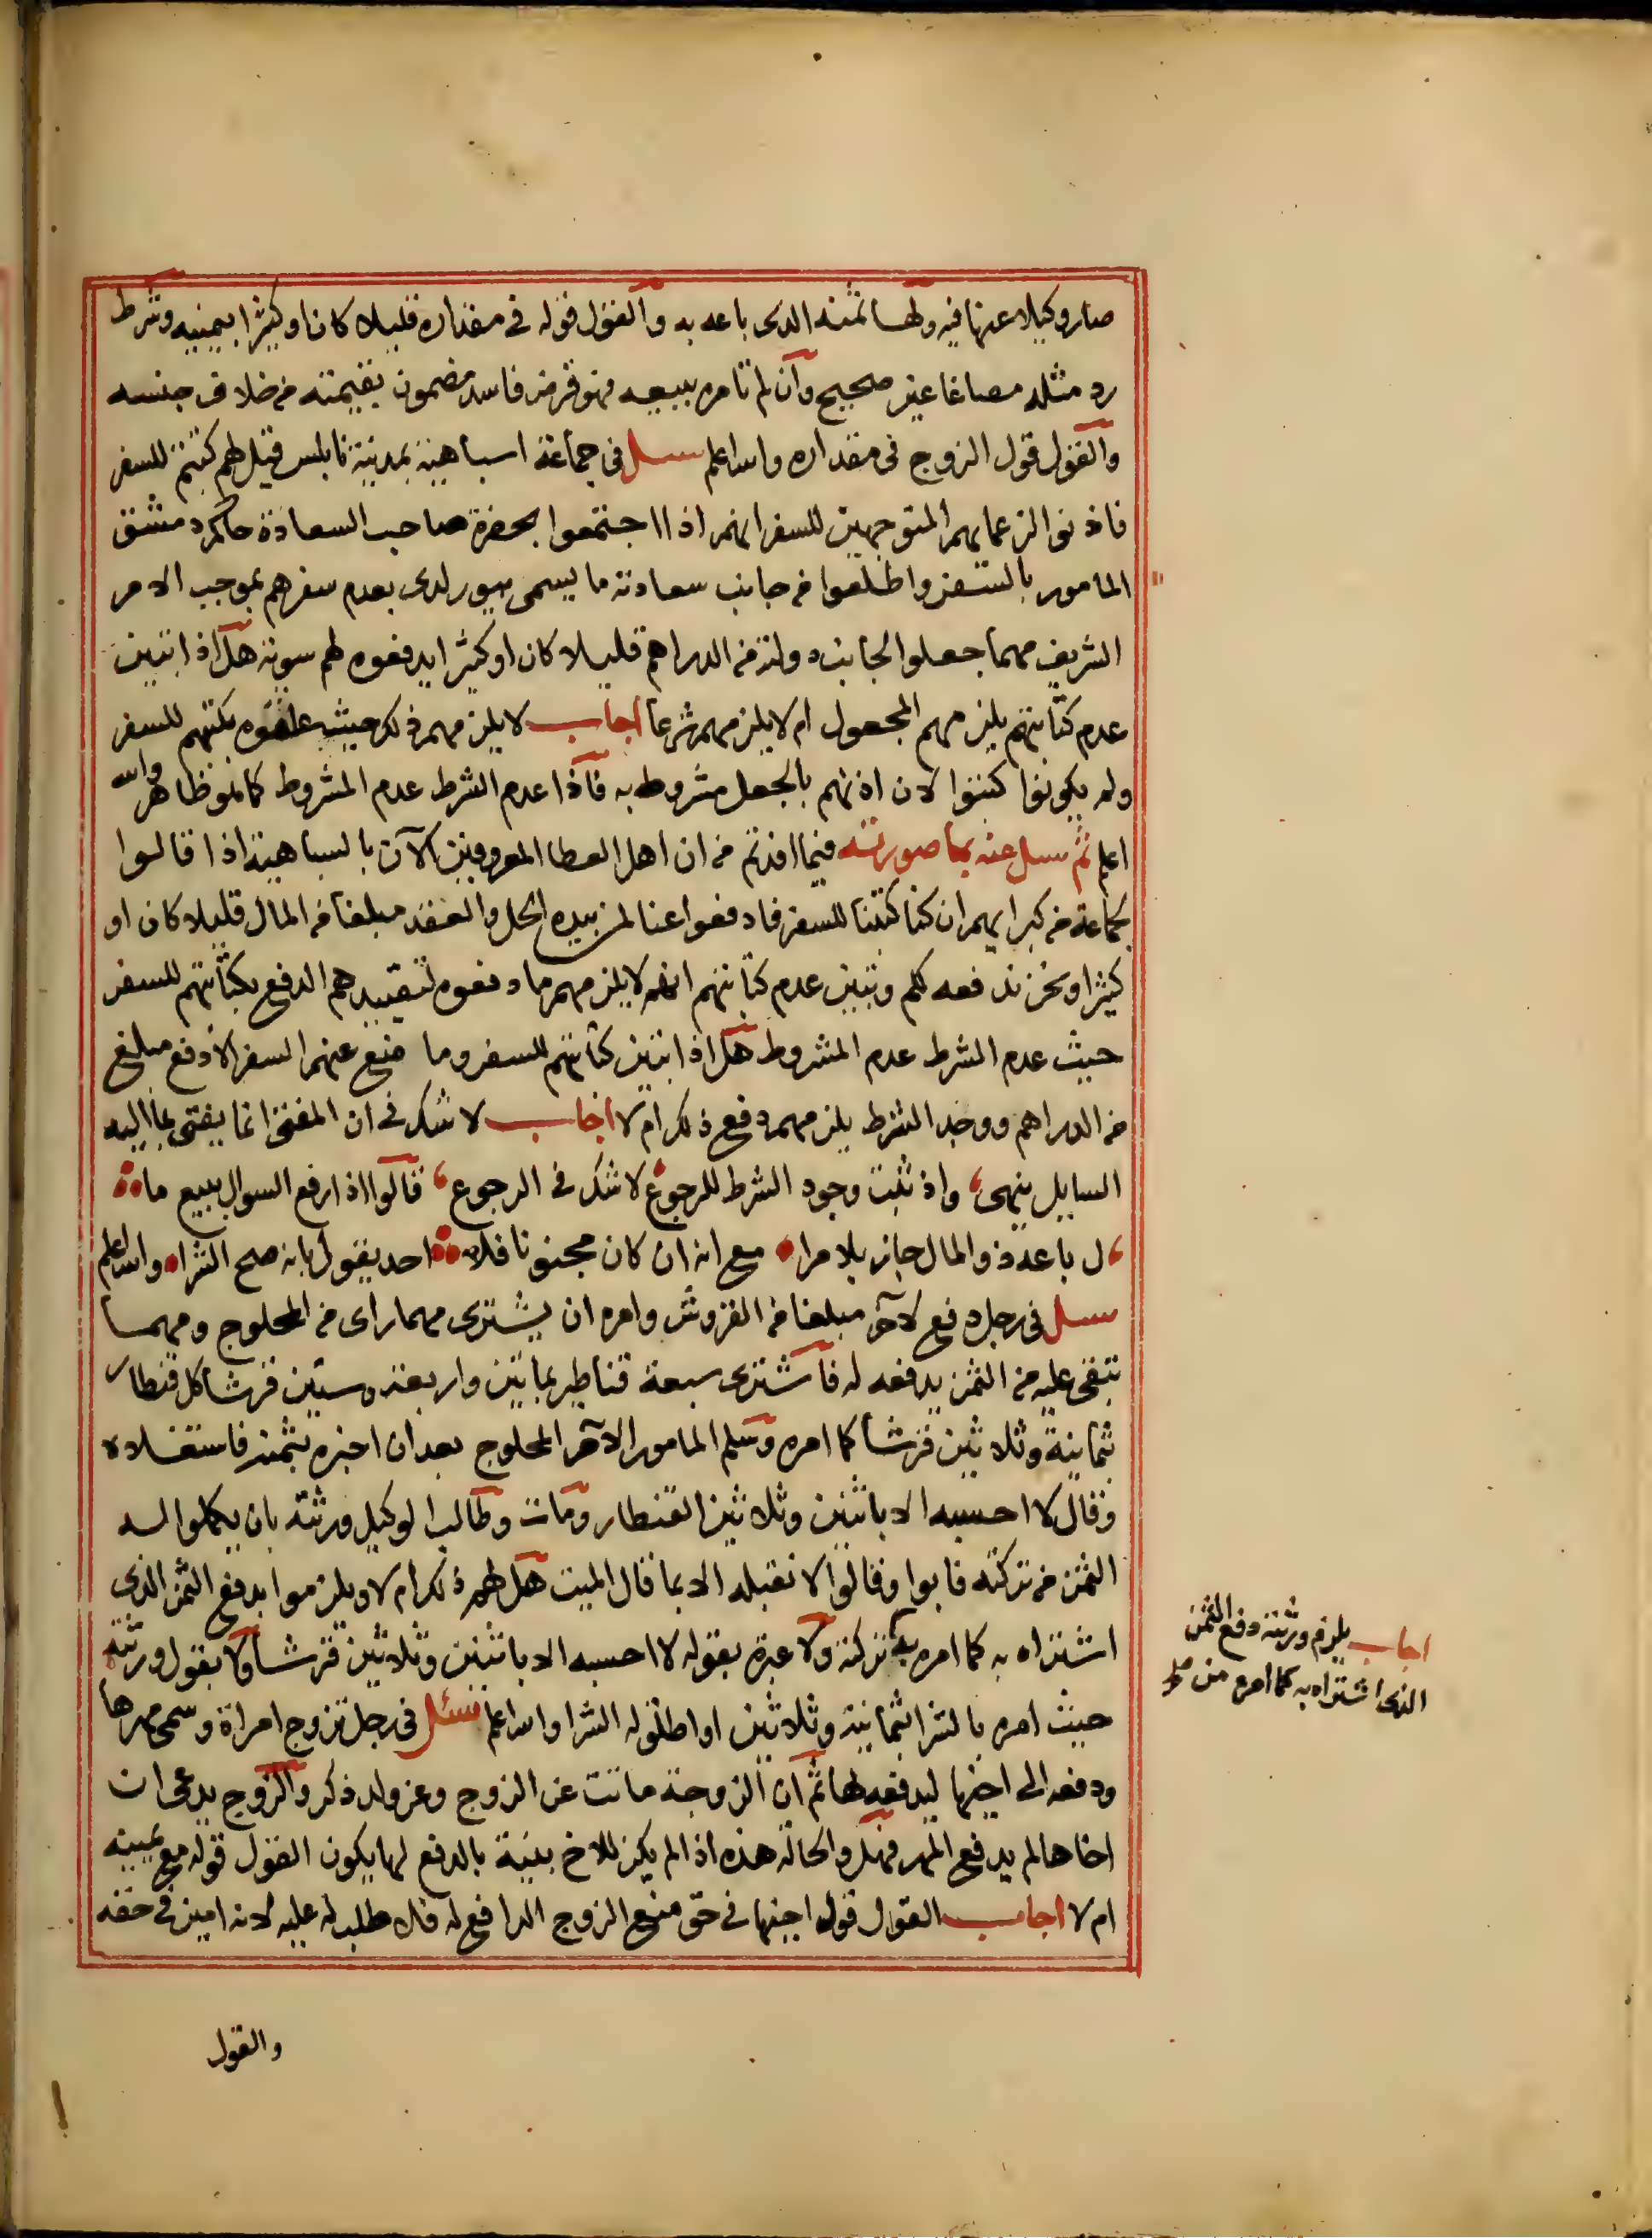 صار وكيلا عنها فيه ولها ثمنه الذى باعه به والقول قوله فى مقداره قليلا كان او كثيرا بيمينه وشرط
رد مثله مصاغا غير صحيح وان لم تامره ببيعه فهو قرض فاسد مضمون بقيمته من خلاف جنسه
والقول قول الزوج فى مقداره والله اعلم سئل فى جماعة اسباهية بمدينة نابلس قيل لهم كتبتم للسفر
فاذنوا لزعمايهم المتوجهين للسفر انهم اذا اجتمعوا بحضرة صاحب السعادة حاكم دمشق
المامور بالسفر واطلعوا من جانب سعادته ما يسمى بيورلدى بعدم سفرهم بموجب الامر
الشريف مهما جعلوا لجانب دولته من الدراهم قليلا كان او كثيرا يدفعوه لهم سوية هل اذا تبين
عدم كتابتهم يلزمهم المجعول ام لا يلزمهم شرعا اجاب لا يلزمهم ذلك حيث علقوه بكتبهم للسفر
ولم يكونوا كتبوا لان اذنهم بالجعل مشروط به فاذا عدم الشرط عدم المشروط كما هو ظاهر والله
اعلم ثم سئل عنه بما صورته فيما افدتم من ان اهل العطا المعروفين الآن بالسباهية اذا قالوا
لجماعة من كبرايهم ان كنا كتبنا للسفر فادفعوا عنا لمن بيده الحل والعقد مبلغا من المال قليلا كان او
كثيرا ونحن ندفعه لكم وتبين عدم كتابتهم انه لا يلزمهم ما دفعوه لتقييدهم الدفع بكتابتهم للسفر
حيث عدم الشرط عدم المشروط هل اذا تبين كتابتهم للسفر وما منع عنهم السفر الا دفع مبلغ
من الدراهم ووجد الشرط يلزمهم دفع ذلك ام لا اجاب لا شك فى ان المفتى انما يفتى بما اليه
السايل ينهى، واذ ثبت وجود الشرط للرجوع لا شك فى الرجوع، فالوا اذا رفع السوال ببيع ما
ل باعه ذو المال جاز بلا مرا، مع انه ان كان مجنونا فلا احد يقول بانه صح الشرا والله اعلم
سئل فى رجل دفع لاخر مبلغا من القروش وامره ان يشترى مهما راى من المحلوج ومهما
تبقى عليه من الثمن يدفعه له فاشترى سبعة قناطير بمايتين واربعة وستين قرشا كل قنطار
ثمانية وثلاثين قرشا كما امره وسلم المامور الآمر المحلوج بعد ان اخبره بثمنه فاستغلاه
وقال لا احسبه الا باثنين وثلاثين القنطار ومات وطالب الوكيل ورثته بان يكملوا له
الثمن من تركته فابوا وقالوا لا نقبله الا بما قال الميت هل لهم ذلك ام لا ويلزموا بدفع الثمن الذى
اشتراه به كما امره به تركته ولا عبرة بقوله لا احسبه الا باثنين وثلاثين قرشا ولا بقول ورثته
حيث امره بالشرا بثمانية وثلاثين او اطلق له الشرا والله اعلم سئل فى رجل تزوج امراة وسمى مهرها
ودفعه الى اخيها ليدفعه لها ثم ان الزوجة ماتت عن الزوج وعن ولد ذكر والزوج يدعى ان
اخاها لم يدفع المهر فهل والحالة هذه اذا لم يكن للاخ بينة بالدفع لها يكون القول قوله مع يمينه
ام لا اجاب القول قول اخيها فى حق منع الزوج الدافع له فلا طلب له عليه لانه امين فى حقه
والقول
اجاب يلزم ورثته دفع الثمن
الذى اشتراه به كما امره من